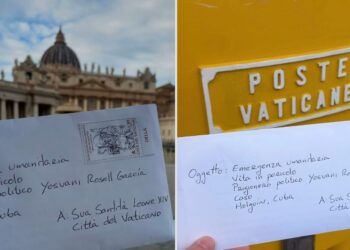 a umanitaria
icolo
olitico Yosvani Rosell García
Cuba
A Sua Santità Leone XIV
Città del Vaticano
POSTE
VATICANE
Oggetto: Emergenza umanitaria
Vita in pericolo
Prigioniero politico Yosvani Ro
Caso
Holguín, Cuba
A Sua S
Città